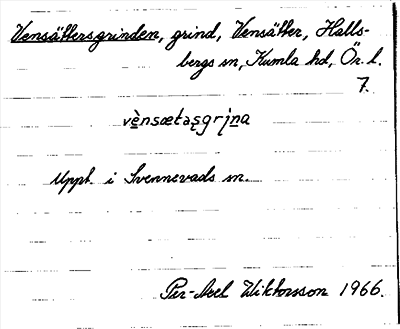 Vensättersgrinden, grind, Vensätter, Halls-
bergs sn, Kumla hd, Ör. l.
7.
vènsætasgrina
Uppt. i Svennevads sn.
Per-Axel Wiktorsson 1966.